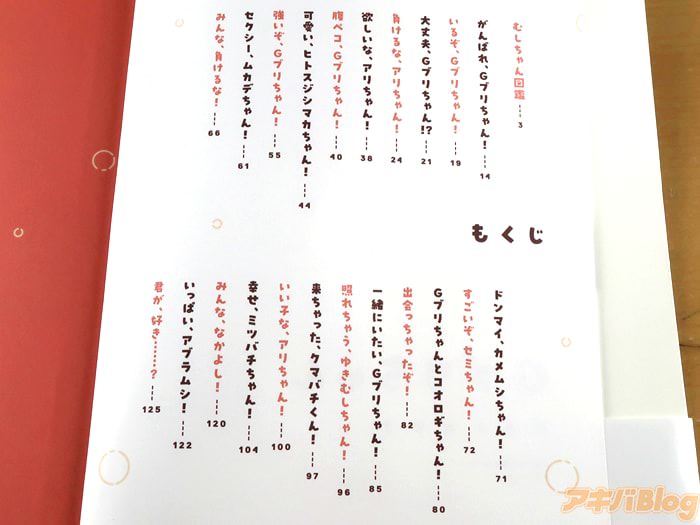 もくじ
むしちゃん図鑑 --- 3
がんばれ、Gブリちゃん! --- 14
いるぞ、Gブリちゃん! --- 19
大丈夫、Gブリちゃん!? --- 21
負けるな、アリちゃん! --- 24
欲しいな、アリちゃん! --- 38
腹ペコ、Gブリちゃん! --- 40
可愛い、ヒトスジシマカちゃん! --- 44
強いぞ、Gブリちゃん! --- 55
セクシー、ムカデちゃん! --- 61
みんな、負けるな! --- 66
ドンマイ、カメムシちゃん! --- 71
すごいぞ、セミちゃん! --- 72
Gブリちゃんとコオロギちゃん! --- 80
出会っちゃったぞ! --- 82
一緒にいたい、Gブリちゃん! --- 85
照れちゃう、ゆきむしちゃん! --- 96
来ちゃった、クマバチくん! --- 97
いい子な、アリちゃん! --- 100
幸せ、ミツバチちゃん! --- 104
みんな、なかよし! --- 120
いっぱい、アブラムシ! --- 122
君が、好き……? --- 125
アキバBlog